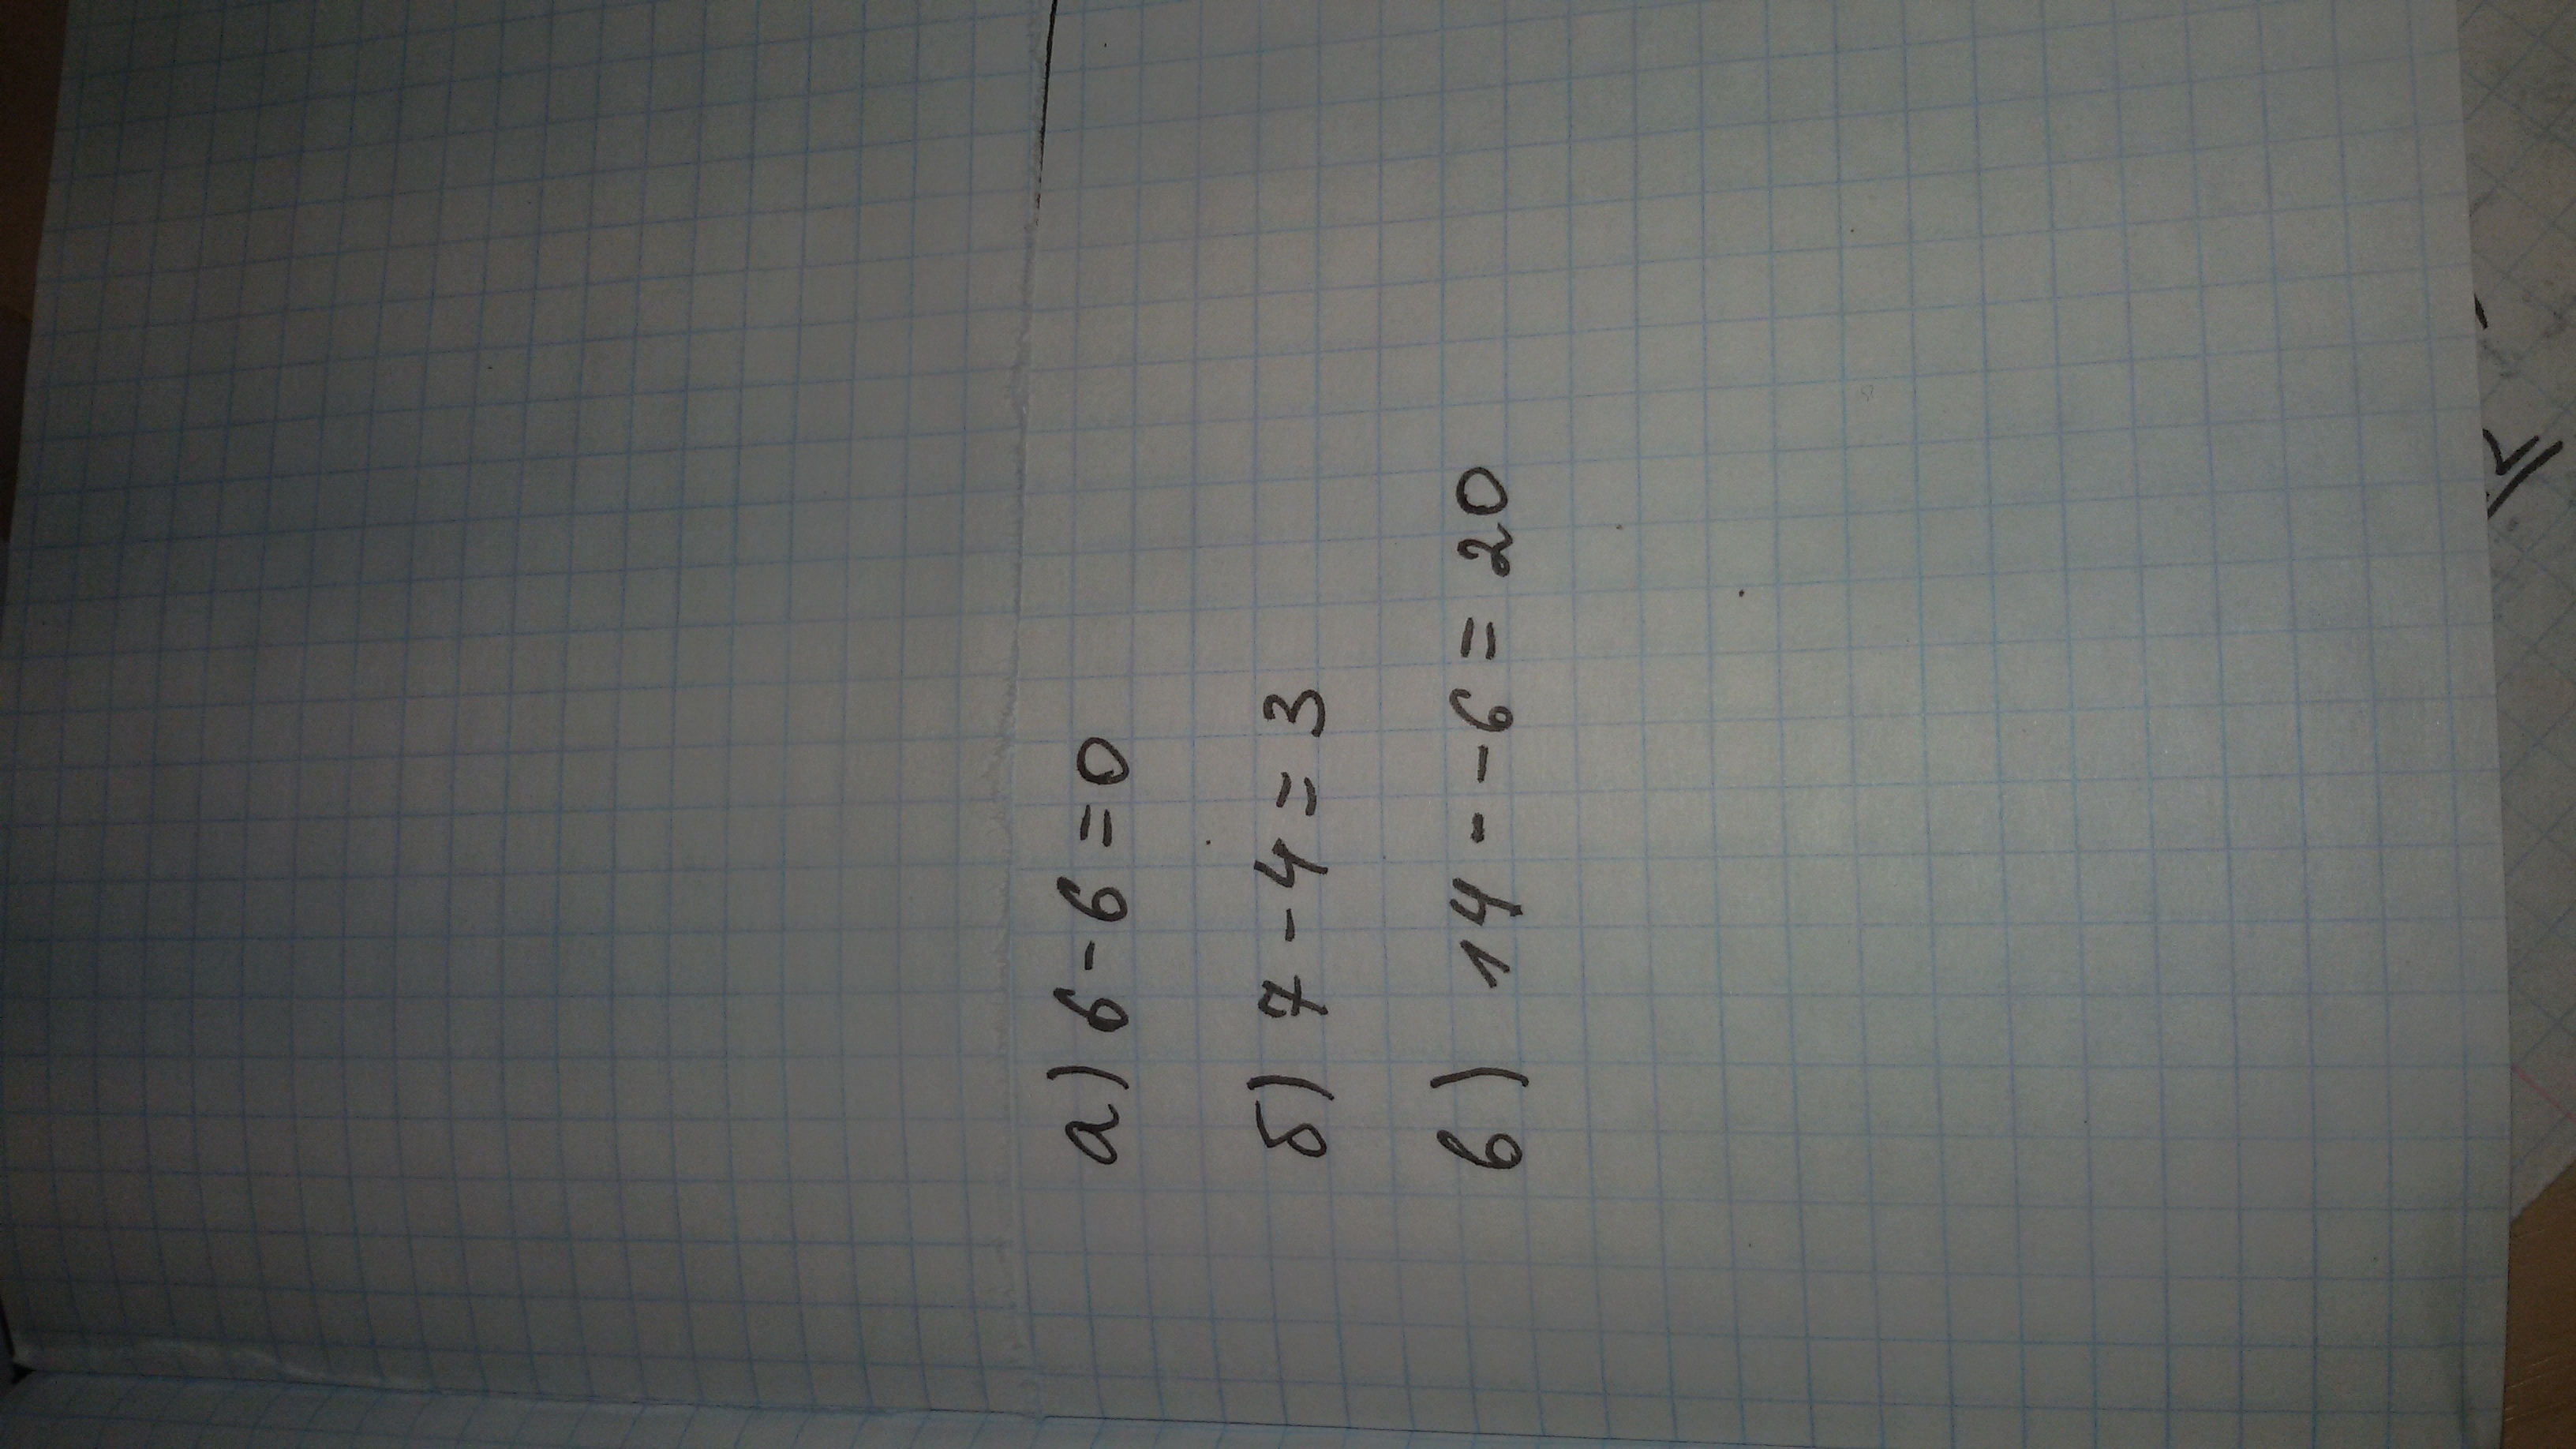 а) 6-6=0
б) 7-4=3
в) 14--6=20